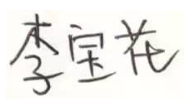 李宝花